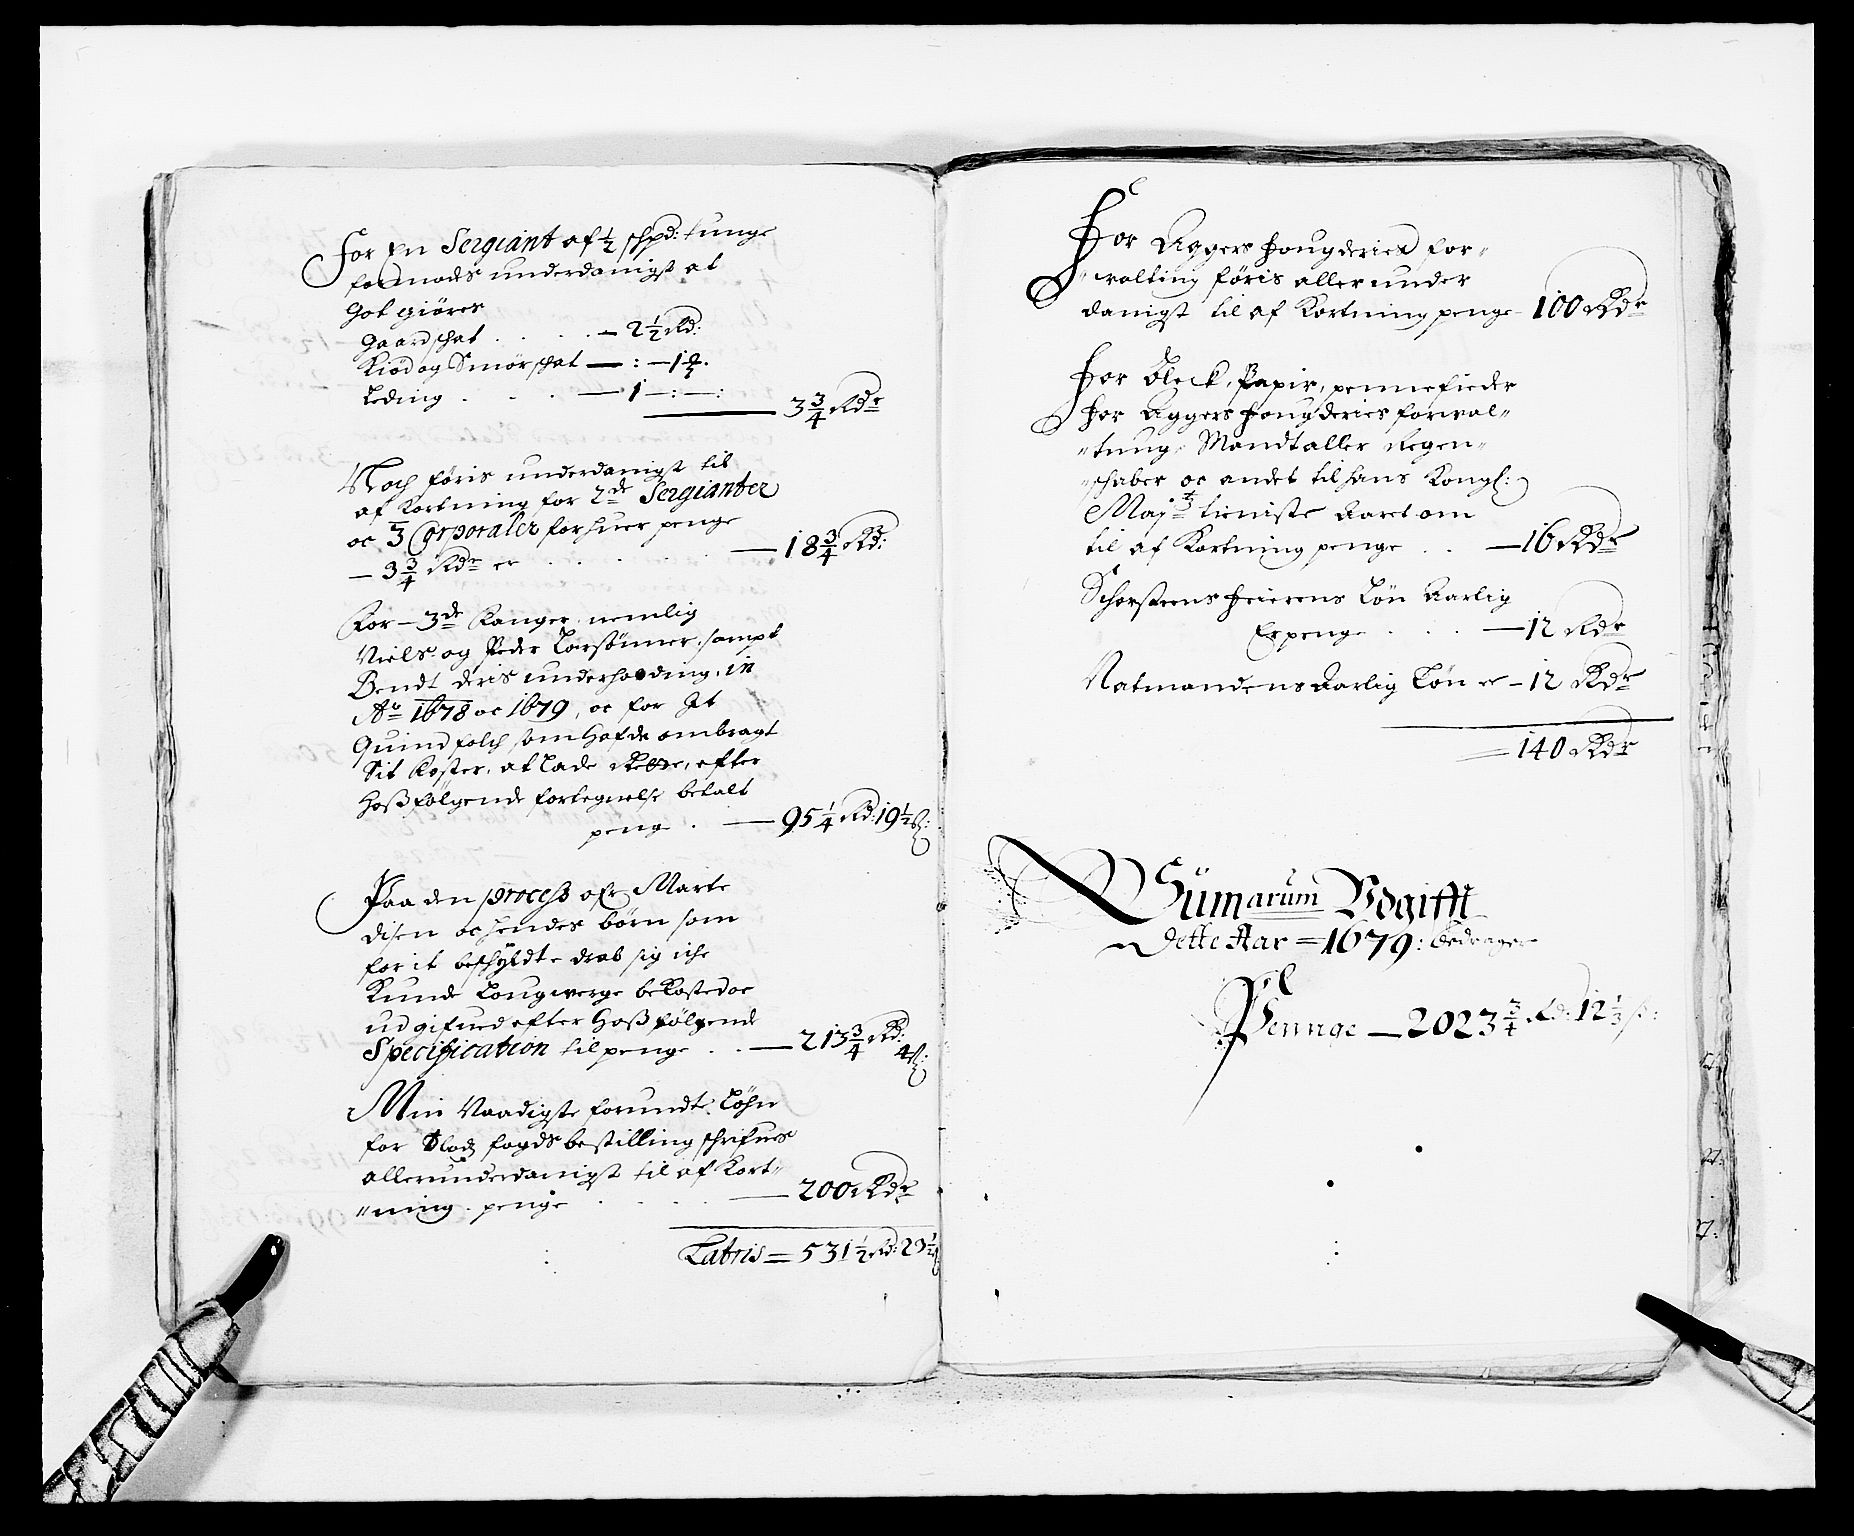 For En Sergiant af ½ schpd: tunge
formodis underdanigst at
Got giøres
Gaardschat . . . . — 2½ Rd:
Kiød og Smørschat — : —1
Leding . . . — 1 —:—:
3¾ Rdr
Noch føris underdanigst til
af Kortning for 2de Sergianter
oc 3 Corporaler for huer penge
— 3¾ Rdr er . . . . — 18¾ Rd:
For — 3de Fanger, nemlig
Niels og Peder Larsønner, sampt
Bendt deris underholding, in
Ao 1678 oc 1679, oc for Et
Quindfolch som Hafde ombragt
Sit Foster, at lade Rette, efter
Hosfølgende fortegnelse betalt
penge . — 95¼ Rd: 19½ ß:
Paa den process ofr Marte
disen oc hendes børn som
for it beschyldt drab sig iche
Kunde Lougwerge bekosted oc
udgifued efter Hosfølgende
Specification til penge . . — 213¾ Rd:
4 ß:
Min Naadigste forundte Løhn
for Slods fogds bestilling schrifues
allerunderdanigst til af Kort„
„ning . penge . . . . — 200 Rdr
Latris = 531½ Rd: 23½ ß
For Aggers Fougderies for„
„valting føris allerunder
danigst til af Kortning penge — 100 Rdr
For Bleck, Papir, pennefieder
for Aggers Fougderies forwal„
„tung, Mandtaller Regen„
„schaber oc andet til hans Kongl:
Majts tieniste Aaret om
til af Kortning penge . . — 16 Rdr
Schorsteens Feierens Løn Aarlig
Er penge . . . — 12 Rdr
Natmandens Aarlig Løn er — 12 Rdr
= 140 Rdr
Sümarum Udgifft
Dette Aar = 1679: bedrager
Pennge — 2023¾ Rd: 12⅓ ß: